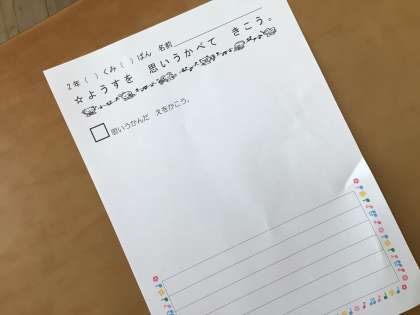 2年( )くみ( )ばん 名前
☆ようすを 思いうかべて きこう。
思いうかんだ えをかこう。